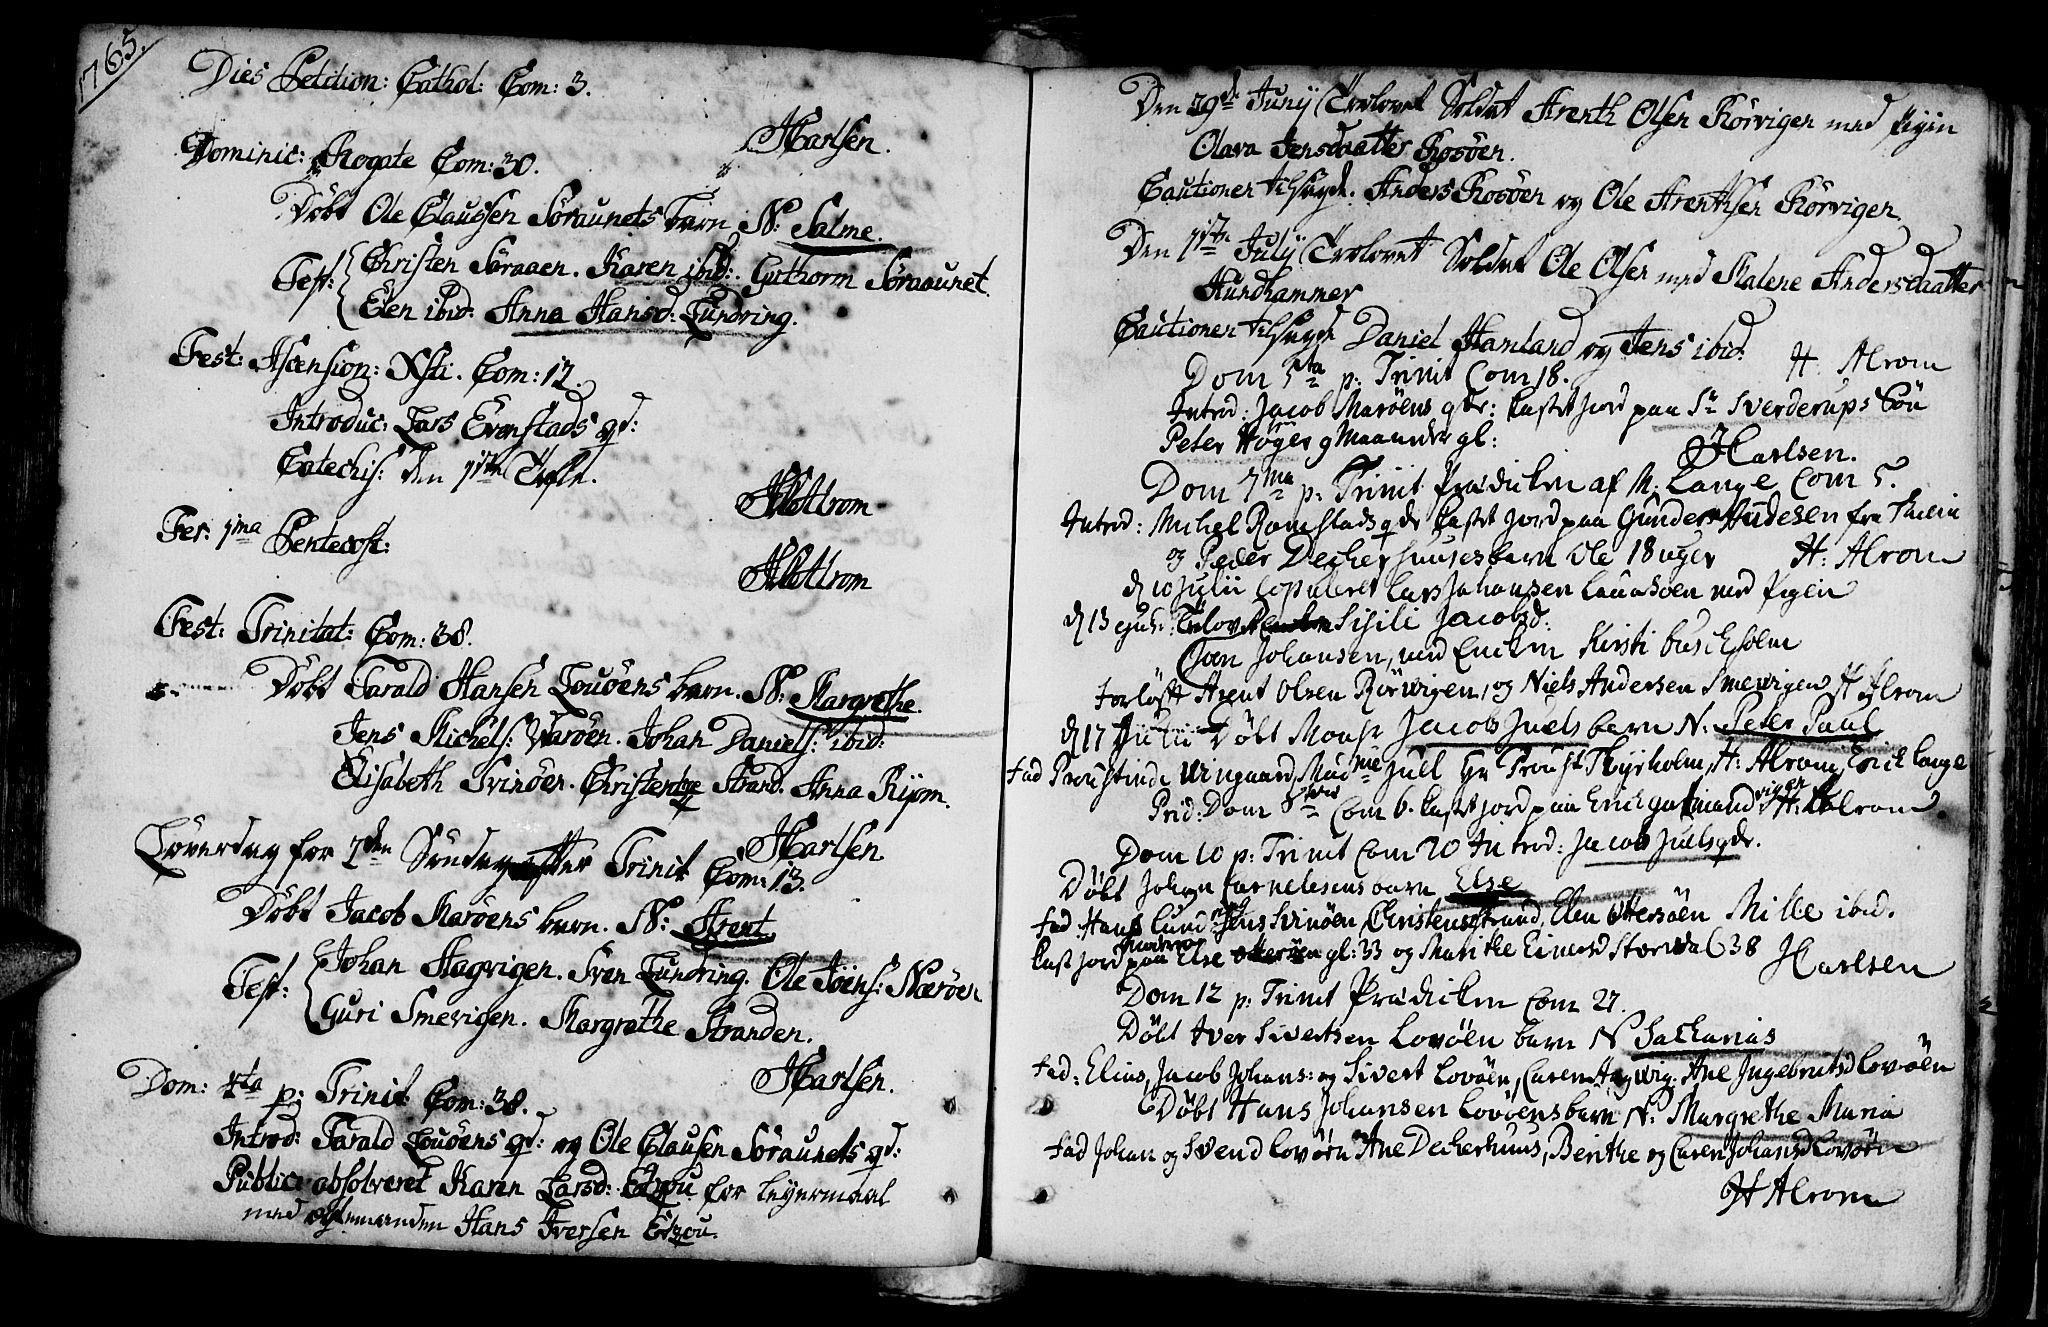 1765.
Dies Petition: Cathol: Com: 3.
HCarlsen.
Dominic: Rogate Com: 30.
Döbt Ole Clausen Söraunets barn N: Salme.
Test: Christen Söraaen. Karen ibid: Guthorm Söraunet.
Elen ibid: Anna Hansd: Lundring.
Fest: Ascension: Xsti. Com: 12.
Introduc: Lars Evenstads qd:
Catechis: den
HAlstrom
Fer: 1ma Pentecost:
HAlstrom
Fest: Trinitat: Com: 38.
Döbt Tarald Hansen Louöens barn. N: Margrethe.
Jens Michels: Naröen. Johan Daniels: ibid:
Elisabeth Svinöen. Christen Strand. Anna Rijom.
Löverdag for 2den Søndag efter Trinit Com: 13.
HCarlsen.
Döbt Jacob Maröens barn. N: Arent
Test: Johan Hagvigen. Sven Lundring. Ole Jöens: Næröen
Guri Smevigen. Margrethe Stranden.
HCarlsen.
Dom: 4ta p: Trinit Com: 38.
Introd: Tarald Louöens qd: og Ole Clausen Söraunets qd:
Public: absolveret Karen Larsd: for leyermaal
med egtemanden Hans Iversen
Den 29de Junij Trolovet Soldat Arenth Olsen Rörvigen med pigen
Olava Jensdaatter Rosöen.
Cautioner tilsagde: Anders Rosöen og Ole Arenthsen Rörvigen
Den July Trolovet Soldat Ole Olsen med Malene Andersdaatter
Hundhammer
Cautioner tilsagde Daniel Hamland og Jens ibid:
H. Alrom
Dom 5ta p: Trinit Com 18.
Introd: Jacob Maröens qde: kastet jord paa Sr Sverderups Sön
Peter Höyer 9 Maaneder gl:
HCarlsen.
Dom 7ma p: Trinit Prædicken af M: Lange Com 5.
Introd: Michel Ramstads qde kastet jord paa Gunder Audesen fra
og Peder Deckerhuuses barn Ole 18 uger H: Alrom
d 10 Julii Copuleret Lars Johansen Lauasöen med Pigen
d 13 Trolov Sisili Jacobsd:
Joen Johansen, med Encken Kirsti buschholm
Forløft Arent Olsen Rörvigen, og Niels Andersen Smevigen H Alrom
d 17 Julii Döbt Monsr Jacob Juels barn N: Peter Paul
Fad Proustinde Wingaard, Madme Juell Hr Proust Thyrholm, H: Alrom, Erick Lange
Præd: Dom 8va Com 6. kastet jord paa Erick vigen H: Alrom
Dom 10 p: Trinit Com 20 Introd: Jacob Juels qde.
Döbt Johan Cornelisens barn Else
Fad Hans Lund Jens Svinöen, Christen Strand, Elen Ottersöen Mille ibid.
kast jord paa Else gl: 33 og Marithe Eimersd Størsdal 38
HCarlsen
Dom 12 p: Trinit Prædicken Com 27.
Döbt Iver Sivertsen Lovöen barn N Sacharias
Fad: Elias, Jacob Johans: og Sivert Lovöen, Caren Hagvig. Ane Ingebretsd Lovöen
Döbt Hans Johansen Lovöens barn N: Margrethe Maria
Fad Johan og Svend Lovöen Ane Deckerhuus, Berithe og Caren Johansd Lovöen
H Alrom